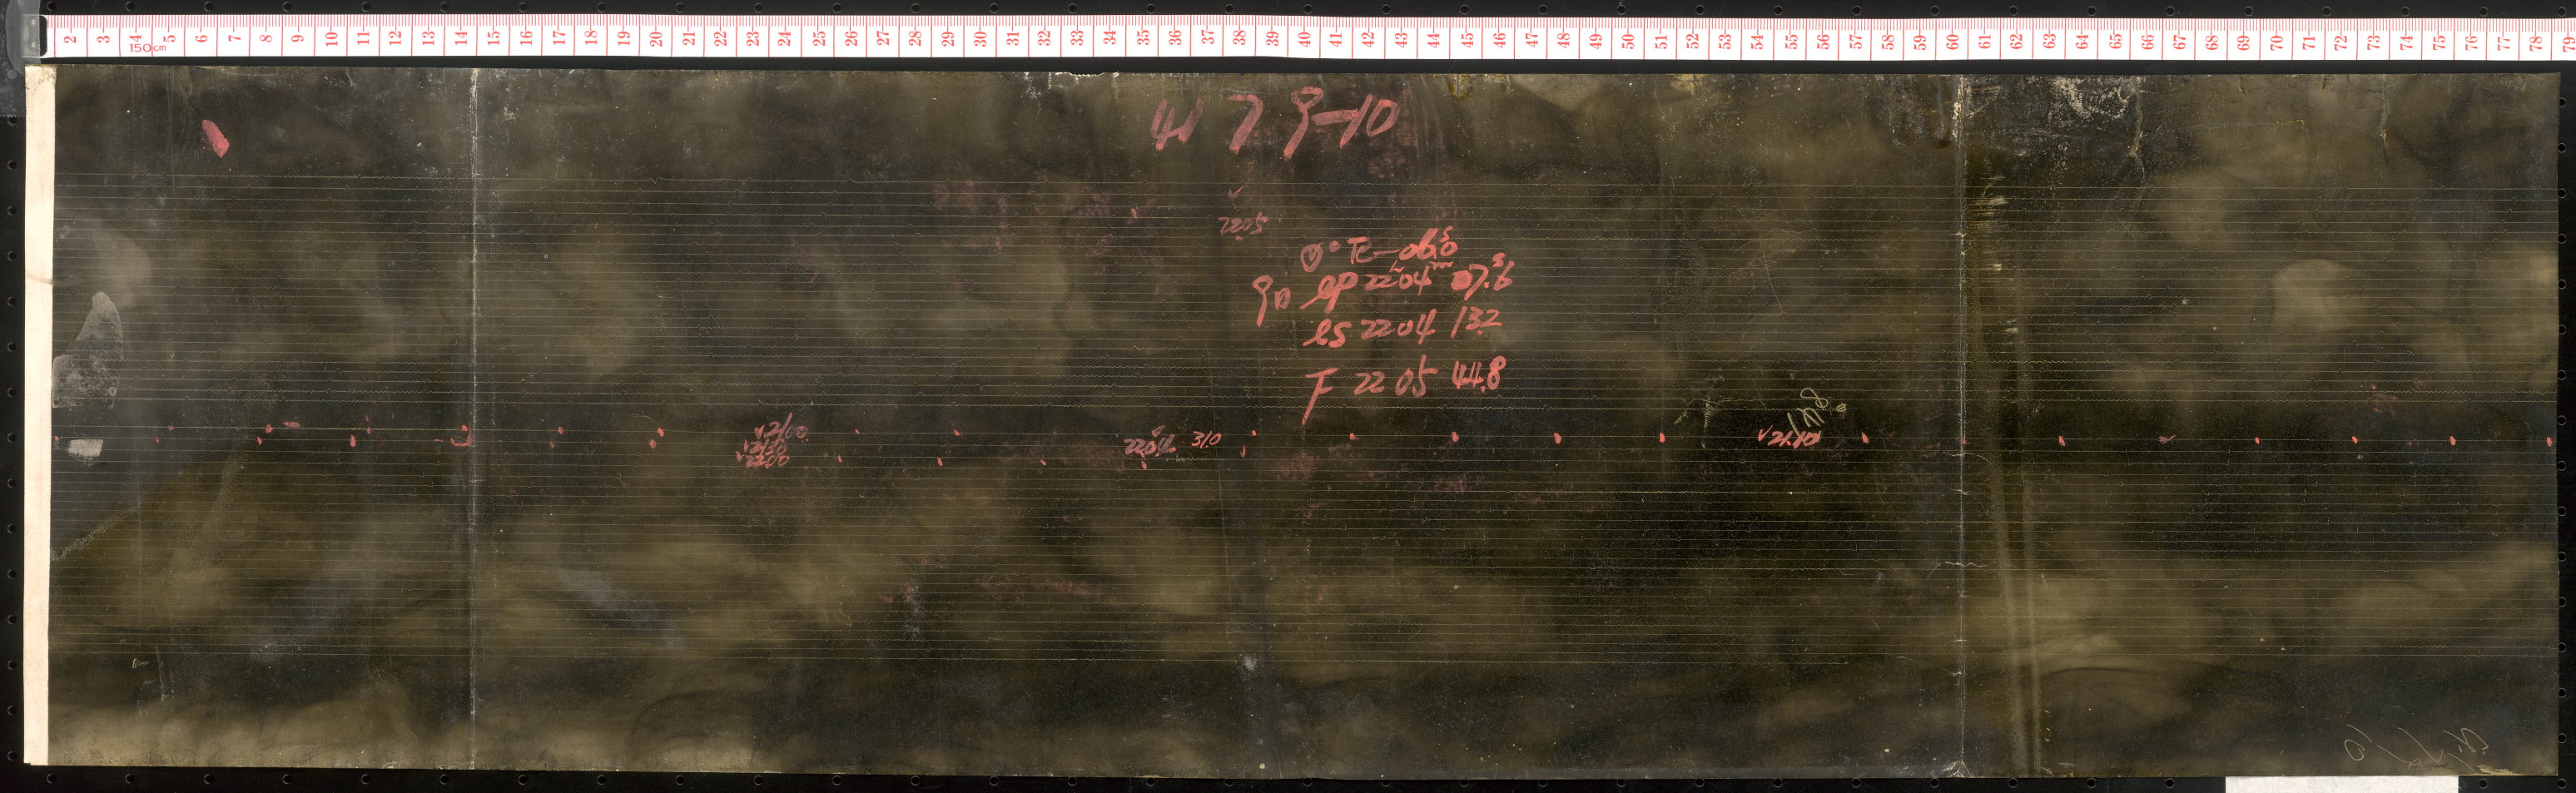 2 3 4 5 6 7 8 9 10 11 12 13 14 15 16 17 18 19 20 21 22 23 24 25 26 27 28 29 30 31 32 33 34 35 36 37 38 39 40 41 42 43 44 45 46 47 48 49 50 51 52 53 54 55 56 57 58 59 60 61 62 63 64 65 66 67 68 69 70 71 72 73 74 75 76 77 78 79
150cm
2205
Tc -06.0s
eP 22h04m 07.s6
eS 22 04 13.2
F 22 05 44.8
v2100
v2150
v2200
2204 31.0
v21.10